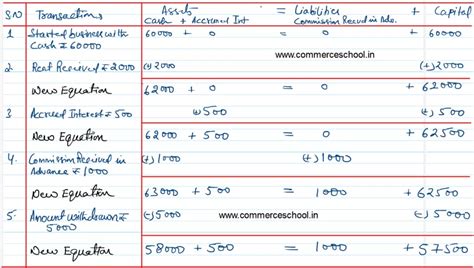 SN Transactions Assets = Liabilities + Capital
Cash + Accrued Int Commission Recvd in Adv.
1 Started business with 60000 + 0 = 0 + 60000
Cash ₹ 60000
www.commerceschool.in
2 Rent Received ₹ 2000 (+) 2000 (+) 2000
New Equation 62000 + 0 = 0 + 62000
3 Accrued Interest ₹ 500 (+) 500 (+) 500
New Equation 62000 + 500 = 0 + 62500
4. Commission Received in (+) 1000 (+) 1000
Advance ₹ 1000
New Equation 63000 + 500 = 1000 + 62500
5. Amount withdrawn ₹ (-) 5000 www.commerceschool.in (-) 5000
5000
New Equation 58000 + 500 = 1000 + 57500